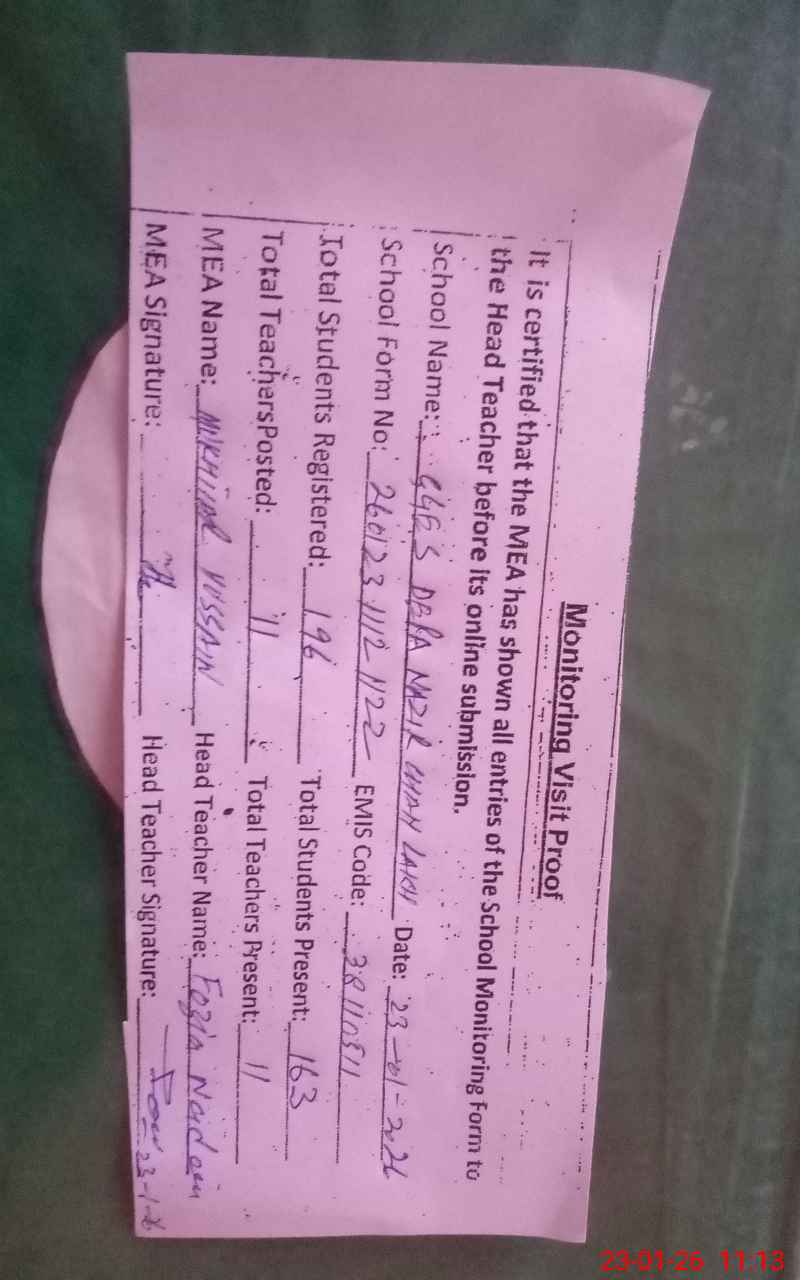 Monitoring Visit Proof
It is certified that the MEA has shown all entries of the School Monitoring Form to
the Head Teacher before its online submission.
School Name: GGES DERA NAZIR Date: 23-01-2026
School Form No: 260123 1112 1122 EMIS Code: 38110511
Total Students Registered: 196 Total Students Present: 163
Total Teachers Posted: 11 Total Teachers Present: 11
MEA Name: Head Teacher Name: Fozia
MEA Signature: Head Teacher Signature: 23-1-26
23-01-26 11:13